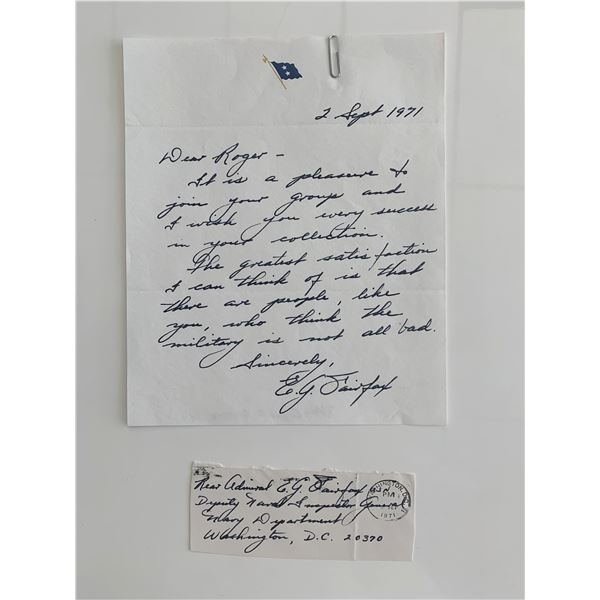 2 Sept 1971
Dear Roger -
It is a pleasure to
join your group and
I wish you every success
in your collection.
The greatest satisfaction
I can think of is that
there are people, like
you, who think the
military is not all bad.
Sincerely,
E.G. Fairfax
Rear Admiral E.G. Fairfax
Deputy Naval Inspector General
Navy Department
Washington, D.C. 20370
WASHINGTON, D.C.
PM
1971